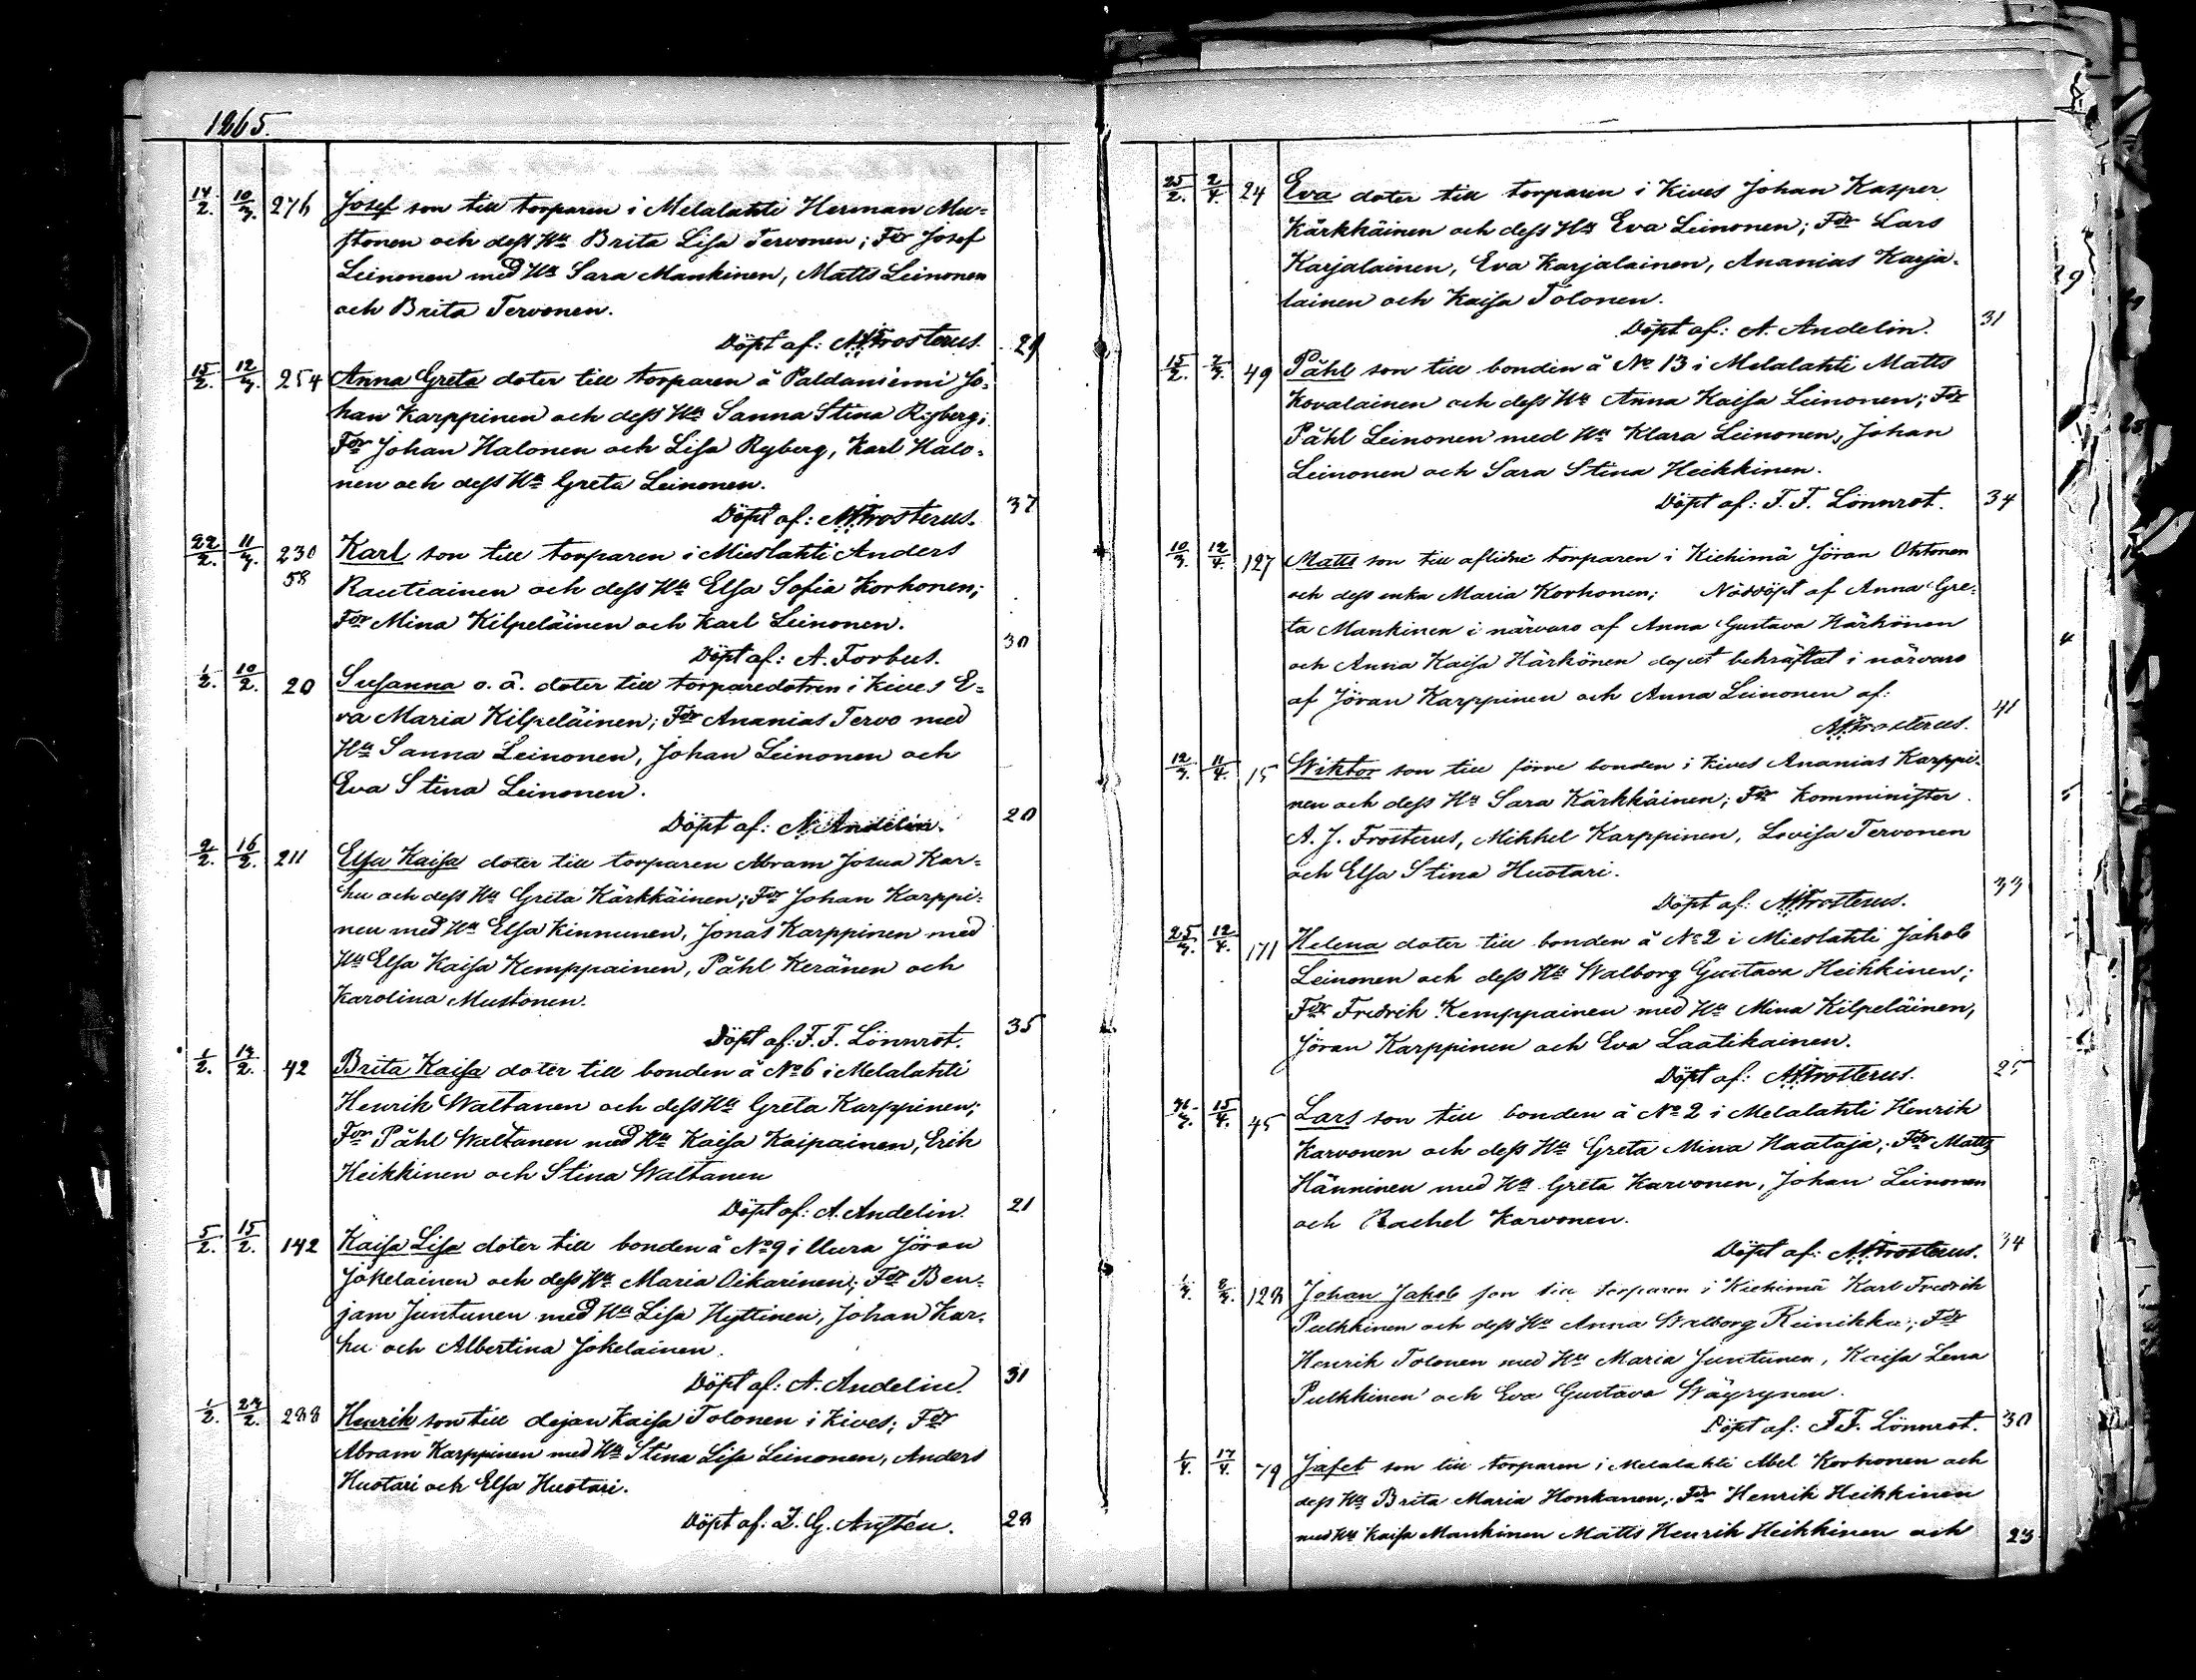 1865.
14/2. 10/3. 276 Josef son till torparen i Melalahti Herman Mu-
stonen och dess Hu Brita Lisa Tervonen; Fdr Josef
Leinonen med Hu Sara Mankinen, Matts Leinonen
och Brita Tervonen.
Döpt af: A.J.Frosterus. 29
15/2. 12/3. 254 Anna Greta doter till torparen å Paldaniemi Jo-
han Karppinen och dess Hu Sanna Stina Ryberg;
Fdr Johan Halonen och Lisa Ryberg, Karl Halo-
nen och dess Hu Greta Leinonen.
Döpt af: A.J.Frosterus. 37
22/2. 11/3. 230 Karl son till torparen i Mieslahti Anders
58 Rautiainen och dess Hu Elsa Sofia Korhonen;
Fdr Mina Kilpeläinen och Karl Leinonen.
Döpt af: A. Forbus. 30
1/2. 10/2. 20 Susanna o. ä. doter till torparedotren i Kives E-
va Maria Kilpeläinen; Fdr Ananias Tervo med
Hu Sanna Leinonen, Johan Leinonen och
Eva Stina Leinonen.
Döpt af: A. Andelin. 20
2/2. 16/2. 211 Elsa Kaisa doter till torparen Abram Josua Kar-
hu och dess Hu Greta Kärkkäinen; Fdr Johan Karppi-
nen med Hu Elsa Kinnunen, Jonas Karppinen med
Hu Elsa Kaisa Kemppainen, Påhl Keränen och
Karolina Mustonen.
Döpt af: F. F. Lönnrot. 35
1/2. 14/2. 42 Brita Kaisa doter till bonden å No 6 i Melalahti
Henrik Waltanen och dess Hu Greta Karppinen;
Fdr Påhl Waltanen med Hu Kaisa Kaipainen, Erik
Heikkinen och Stina Waltanen
Döpt af: A. Andelin. 21
5/2. 15/2. 142 Kaisa Lisa doter till bonden å No 9 i Uura Jöran
Jokelainen och dess Hu Maria Oikarinen; Fdr Ben-
jam Juntunen med Hu Lisa Hyttinen, Johan Kar-
hu och Albertina Jokelainen.
Döpt af: A. Andelin. 31
1/2. 24/2. 288 Henrik son till dejan Kaisa Tolonen i Kives; Fdr
Abram Karppinen med Hu Stina Lisa Leinonen, Anders
Huotari och Elsa Huotari.
Döpt af: Z. G. 28
25/2. 2/4. 24 Eva doter till torparen i Kives Johan Kasper
Kärkkäinen och dess Hu Eva Leinonen; Fdr Lars
Karjalainen, Eva Karjalainen, Ananias Karja-
lainen och Kaisa Tolonen.
Döpt af: A. Andelin. 31
15/2. 7/3. 49 Påhl son till bonden å No 13 i Melalahti Matts
Kovalainen och dess Hu Anna Kaisa Leinonen; Fdr
Påhl Leinonen med Hu Klara Leinonen, Johan
Leinonen och Sara Stina Heikkinen.
Döpt af: F. F. Lönnrot. 34
10/3. 12/4. 127 Matts son till aflidne torparen i Kiehimä Jöran Ohtonen
och dess enka Maria Korhonen; Nöddöpt af Anna Gre-
ta Mankinen i närvaro af Anna Gustava Härkönen
och Anna Kaisa Härkönen dopet bekräftat i närvaro
af Jöran Karppinen och Anna Leinonen af:
A.J.Frosterus. 41
12/3. 11/4. 15 Wiktor son till förre bonden i Kives Ananias Karppi-
nen och dess Hu Sara Kärkkäinen; Fdr Komminister
A. J. Frosterus, Mikkel Karppinen, Lovisa Tervonen
och Elsa Stina Huotari.
Döpt af: A.J.Frosterus. 33
25/3. 12/4. 171 Helena doter till bonden å No 2 i Mieslahti Jakob
Leinonen och dess Hu Walborg Gustava Heikkinen;
Fdr Fredrik Kemppainen med Hu Mina Kilpeläinen,
Jöran Karppinen och Eva Laatikainen.
Döpt af: A.J.Frosterus. 25
31/3. 15/4. 45 Lars son till bonden å No 2 i Melalahti Henrik
Karvonen och dess Hu Greta Mina Haataja; Fdr Matts
Hänninen med Hu Greta Karvonen, Johan Leinonen
och Rachel Karvonen.
Döpt af: A.J.Frosterus. 34
1/3. 2/3. 128 Johan Jakob son till torparen i Kiehimä Karl Fredrik
Pulkkinen och dess Hu Anna Walborg Reinikka; Fdr
Henrik Tolonen med Hu Maria Juntunen, Kaisa Lena
Pulkkinen och Eva Gustava Wäyrynen.
Döpt af: F. F. Lönnrot. 30
1/4. 17/4. 79 Jafet son till torparen i Melalahti Abel Korhonen och
dess Hu Brita Maria Honkanen; Fdr Henrik Heikkinen
med Hu Kaisa Mankinen Matts Henrik Heikkinen och 23